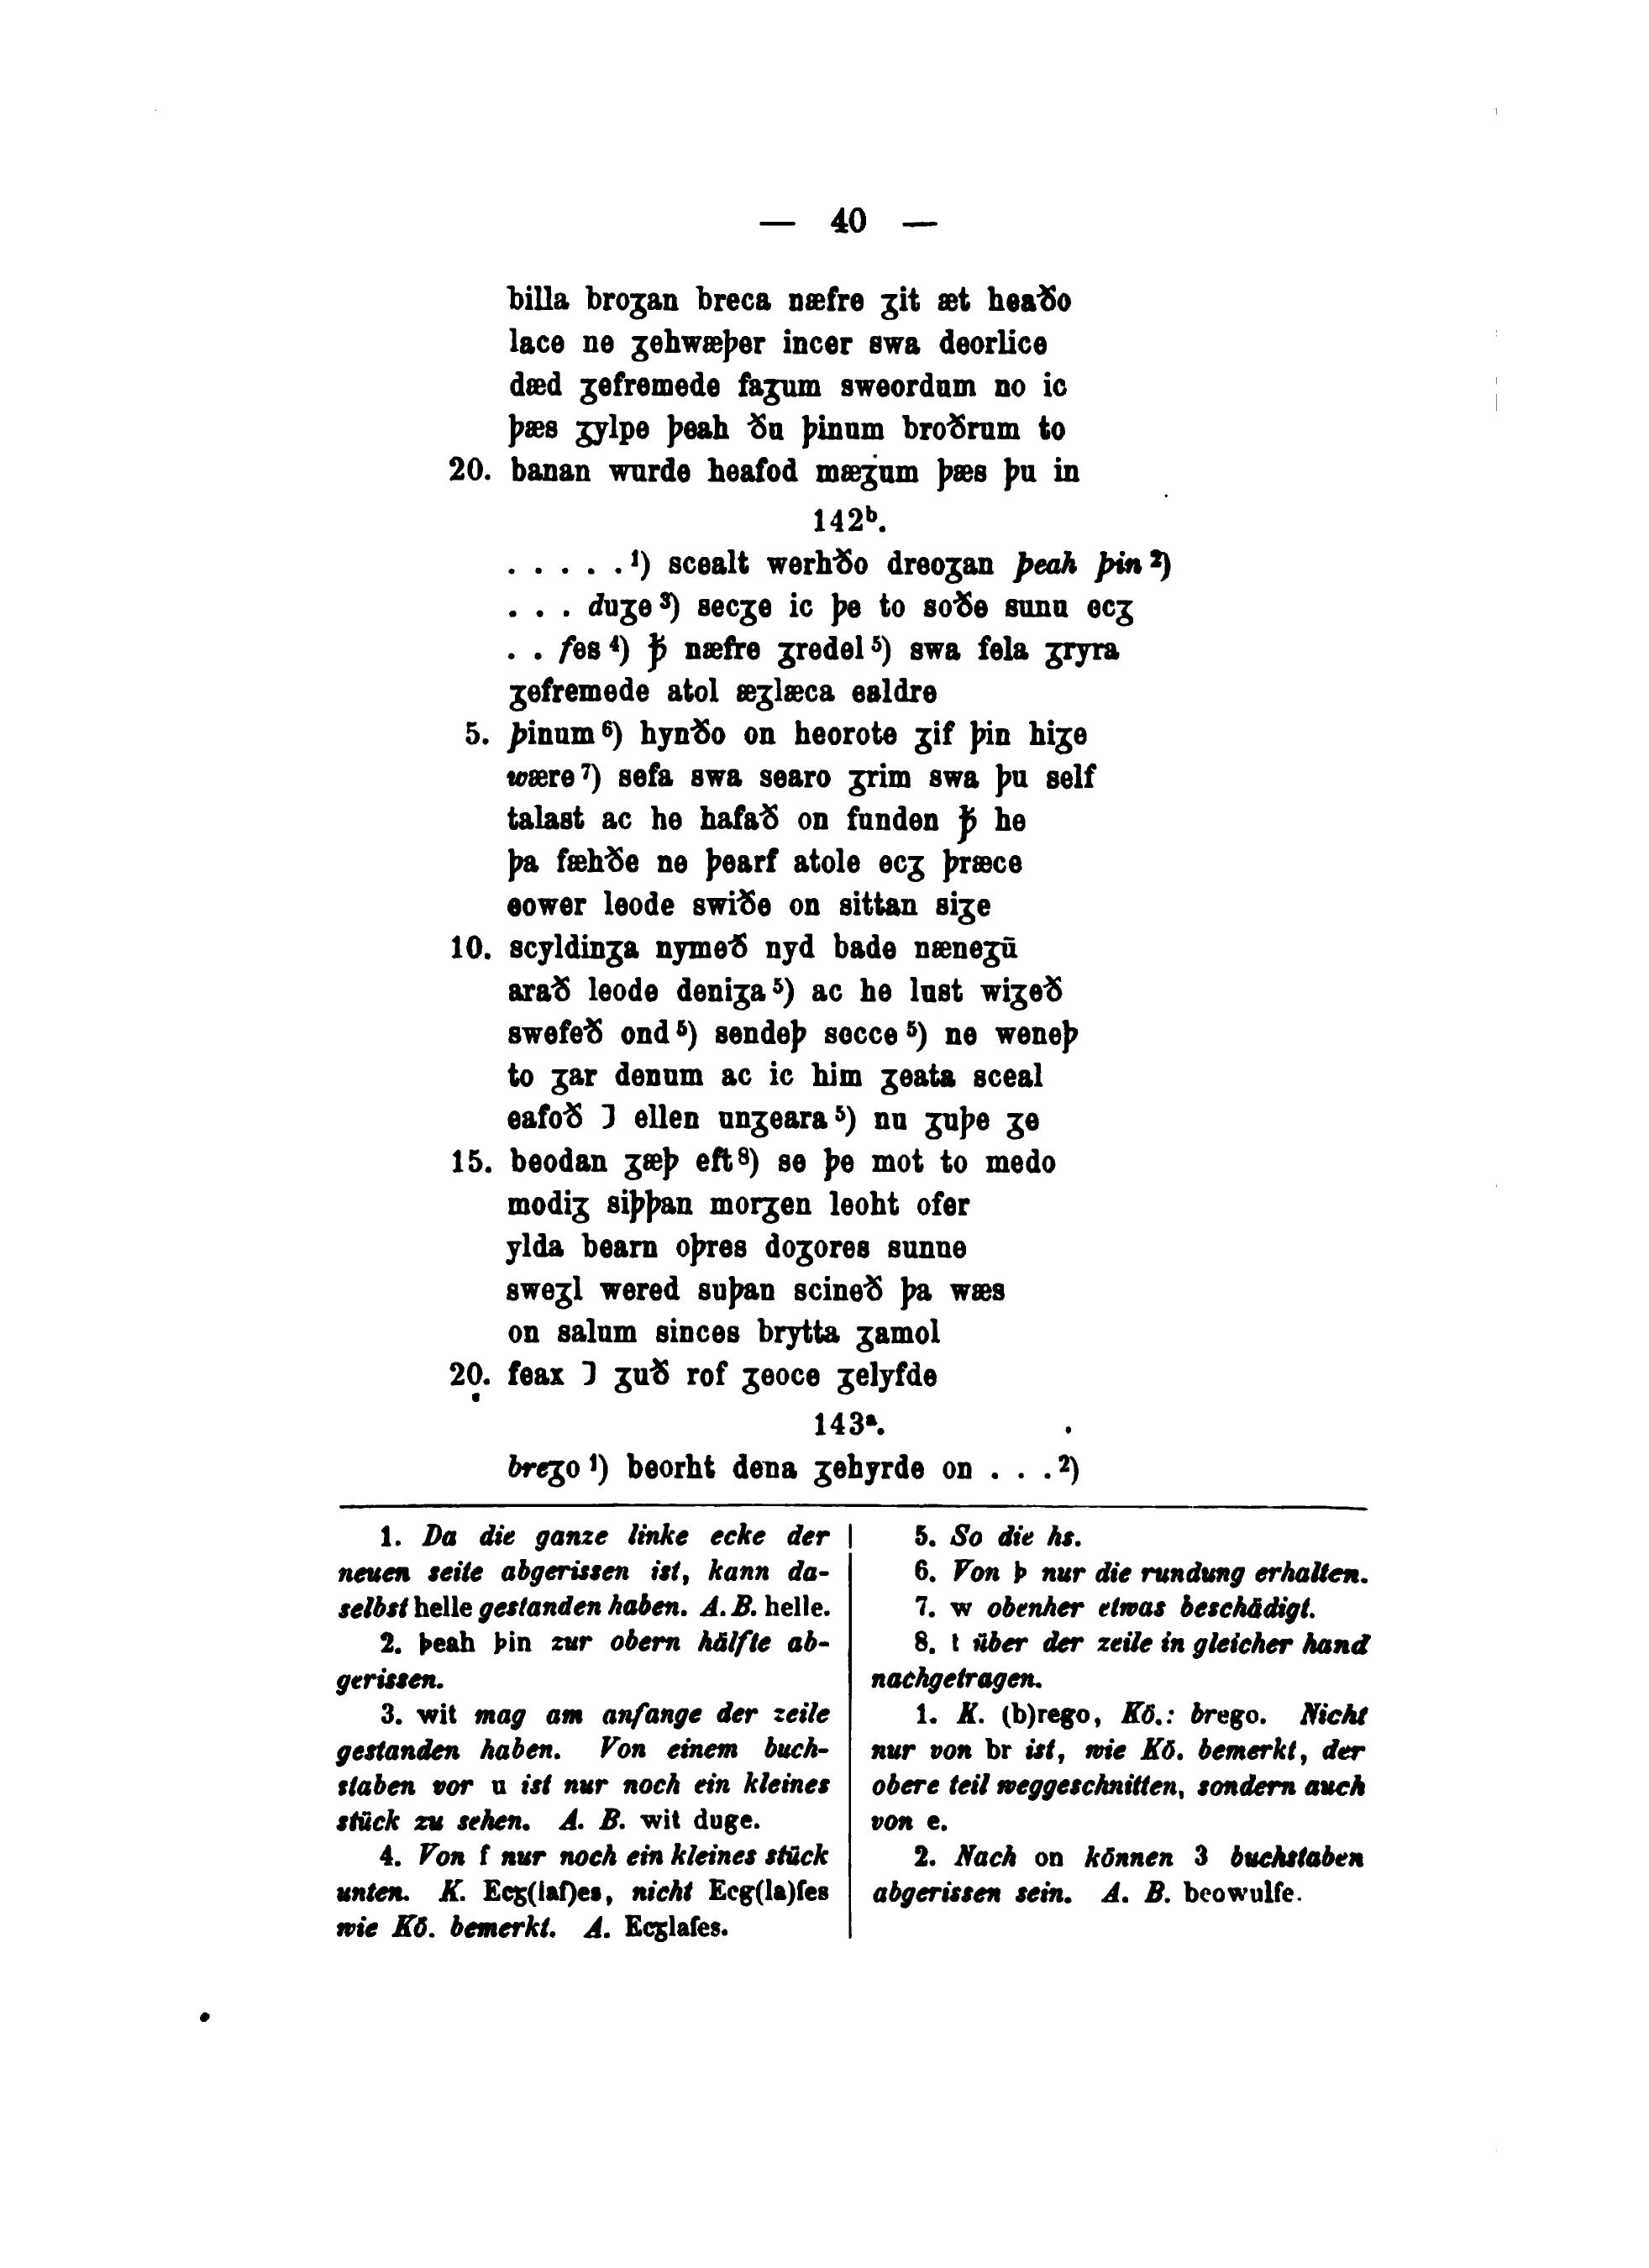 — 40 —
billa broʒan breca næfre ʒit æt heaðo
lace ne ʒehwæþer incer swa deorlice
dæd ʒefremede faʒum sweordum no ic
þæs ʒylpe þeah ðu þinum broðrum to
20. banan wurde heafod mæʒum þæs þu in
142ᵇ.
. . . . . ¹) scealt werhðo dreoʒan þeah þin ²)
. . . duʒe ³) secʒe ic þe to soðe sunu ecʒ
. . fes ⁴) ꝥ næfre ʒredel ⁵) swa fela ʒryra
ʒefremede atol æʒlæca ealdre
5. þinum ⁶) hynðo on heorote ʒif þin hiʒe
wære ⁷) sefa swa searo ʒrim swa þu self
talast ac he hafað on funden ꝥ he
þa fæhðe ne þearf atole ecʒ þræce
eower leode swiðe on sittan siʒe
10. scyldinʒa nymeð nyd bade næneʒū
arað leode deniʒa ⁵) ac he lust wiʒeð
swefeð ond ⁵) sendeþ secce ⁵) ne weneþ
to ʒar denum ac ic him ʒeata sceal
eafoð ⁊ ellen unʒeara ⁵) nu ʒuþe ʒe
15. beodan ʒæþ eft ⁸) se þe mot to medo
modiʒ siþþan morʒen leoht ofer
ylda bearn oþres doʒores sunne
sweʒl wered suþan scineð þa wæs
on salum sinces brytta ʒamol
20. feax ⁊ ʒuð rof ʒeoce ʒelyfde
143ᵃ.
breʒo ¹) beorht dena ʒehyrde on . . . ²)
1. Da die ganze linke ecke der
neuen seite abgerissen ist, kann da-
selbst helle gestanden haben. A. B. helle.
2. þeah þin zur obern hälfte ab-
gerissen.
3. wit mag am anfange der zeile
gestanden haben. Von einem buch-
staben vor u ist nur noch ein kleines
stück zu sehen. A. B. wit duge.
4. Von f nur noch ein kleines stück
unten. K. Ecʒ(laf)es, nicht Ecg(la)fes
wie Kö. bemerkt. A. Ecʒlafes.
5. So die hs.
6. Von þ nur die rundung erhalten.
7. w obenher etwas beschädigt.
8. t über der zeile in gleicher hand
nachgetragen.
1. K. (b)rego, Kö.: brego. Nicht
nur von br ist, wie Kö. bemerkt, der
obere teil weggeschnitten, sondern auch
von e.
2. Nach on können 3 buchstaben
abgerissen sein. A. B. beowulfe.